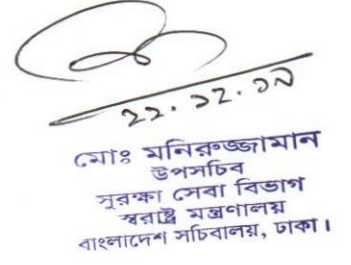 ২২.১২.১৯
মোঃ মনিরুজ্জামান
উপসচিব
সুরক্ষা সেবা বিভাগ
স্বরাষ্ট্র মন্ত্রণালয়
বাংলাদেশ সচিবালয়, ঢাকা।